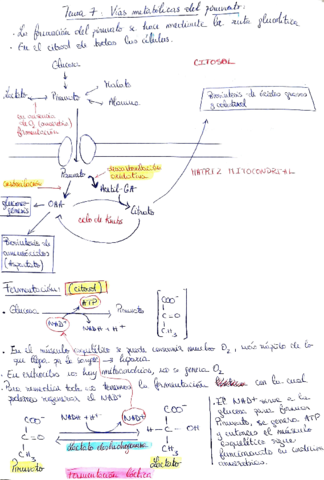 Tema 7: Vías metabólicas del piruvato:
· La formación del piruvato se hace mediante la ruta glucolítica
· En el citosol de todas las células.
Glucosa
CITOSOL
Lactato
Piruvato
Malato
Alanina
Biosíntesis de ácidos grasos y colesterol
en ausencia
de O₂ (anaerobio)
fermentación
Piruvato
descarboxilación
oxidativa
MATRIZ MITOCONDRIAL
carboxilación
Acetil-CoA
gluconeo-
génesis
OAA
Citrato
ciclo de Krebs
Biosíntesis de
aminoácidos
(Aspartato)
Fermentación: (citosol)
ATP
· Glucosa
Piruvato
NAD⁺
NADH + H⁺
COO⁻
C=O
CH₃
· En el músculo esquelético se puede consumir mucho O₂, más rápido de lo
que llega por la sangre → hipoxia
· En eritrocitos no hay mitocondrias, no se genera O₂
· Para remediar todo → tenemos la fermentación láctica con la cual
podemos regenerar el NAD⁺
COO⁻
C=O
CH₃
Piruvato
NADH + H⁺
NAD⁺
Lactato deshidrogenasa
COO⁻
H-C-OH
CH₃
Lactato
Fermentación láctica
· El NAD⁺ sirve a la
glucosa para formar
Piruvato, se genera ATP
y entonces el músculo
esquelético sigue
funcionando en condiciones
anaerobias.